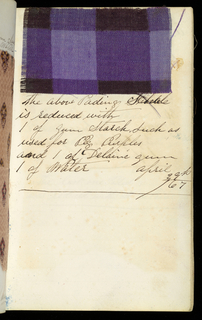 The above Padings
is reduced with
1 of gum Starch Such as
used for Big
and 1 of Delaine gum
1 of Water april
67